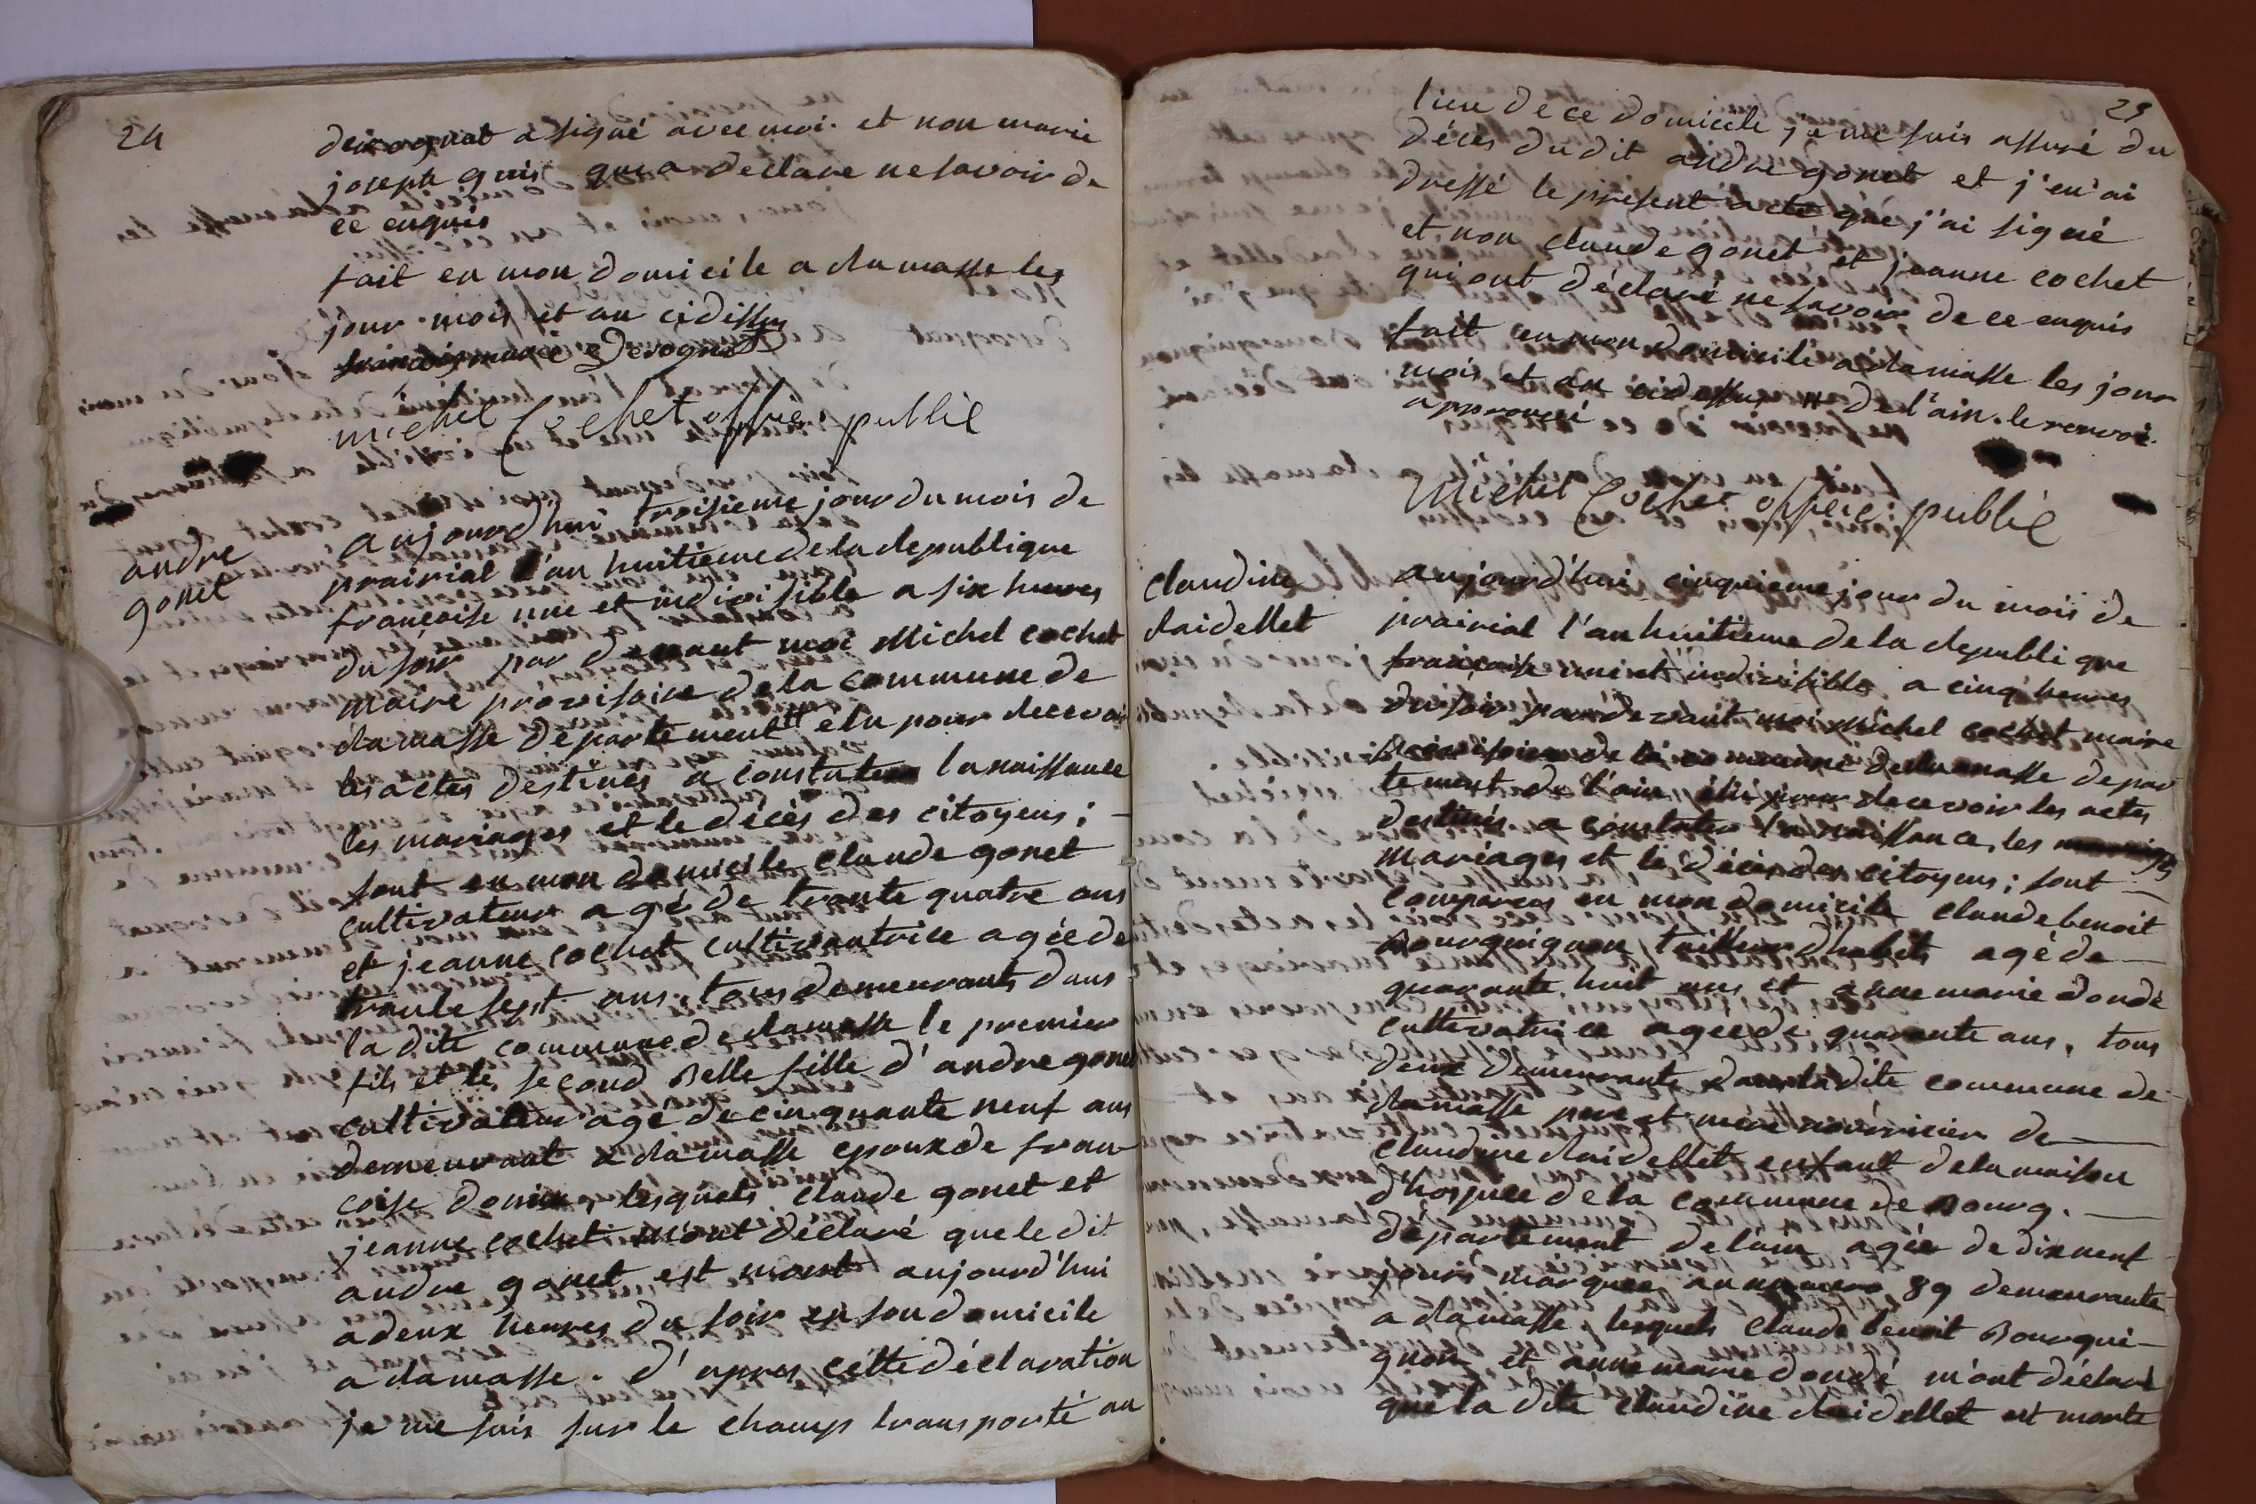 24
derognat a signé avec moi. et non marie
joseph guis qui a declaré ne savoir de
ce enquis
fait en mon domicile a ramasse les
jour. mois et an cidissus
francois marie Derognat
michel Cochet officier public
andre
gonet
aujourd'hui troisieme jour du mois de
prairial l'an huitieme de la republique
françoise une et indivisible a six heures
du soir par devant moi Michel cochet
maire provisoire de la commune de
ramasse departement # elu pour recevoir
les actes destines a constater la naissance
les mariages et le décès des citoyens;
sont en mon domicile claude gonet
cultivateur agé de trante quatre ans
et jeanne cochet cultivautrice agée de
trante sept ans, tous demeurants dans
la dite commune de ramasse le premier
fils et les second Belle fille d'andre gonet
cultivateur agé de cinquante neuf ans
demeurant a ramasse epoux de fran
coise , lesquels claude gonet et
jeanne cochet m'ont déclaré que le dit
andre gonet est mort aujourd'hui
a deux heures du soir en son domicile
a ramasse. d'apres cette déclaration
je me suis sur le champ transporté au
25
lieu de ce domicile, je me suis assuré du
décès du dit andre gonet et j'en ai
dressé le présent acte que j'ai signé
et non claude gonet et jeanne cochet
qui ont déclaré ne savoir de ce enquis
fait en mon domicile a ramasse les jour
mois et an cidessus # de l'ain. le renvoi
approuvé
Michel Cochet officié public
claudine
raidellet
aujourd'hui cinquieme jour du mois de
prairial l'an huitieme de la republique
française une et indivisible a cinq heures
du soir par devant moi Michel cochet maire
provisoire de la commune de ramasse depar
tement de l'ain élu pour recevoir les actes
destinés a constater la naissance, les
mariages et le décès des citoyens; sont
comparus en mon domicile claude benoit
Bourguignon tailleur d'habits agé de
quarante huit ans et anne marie dondé
cultivatrice agée de quarante ans, tous
deux demeurants dans la dite commune de
ramasse pere et mere nourricier de
claudine raidellet enfant de la maison
d'hospice de la commune de Bourg.
departement de l'ain agée de dix neuf
jours marquée au numero 89 demeurante
a ramasse, lesquels claude benoit Bourgui-
gnon et anne marie dondé m'ont déclaré
que la dite claudine raidellet est morte